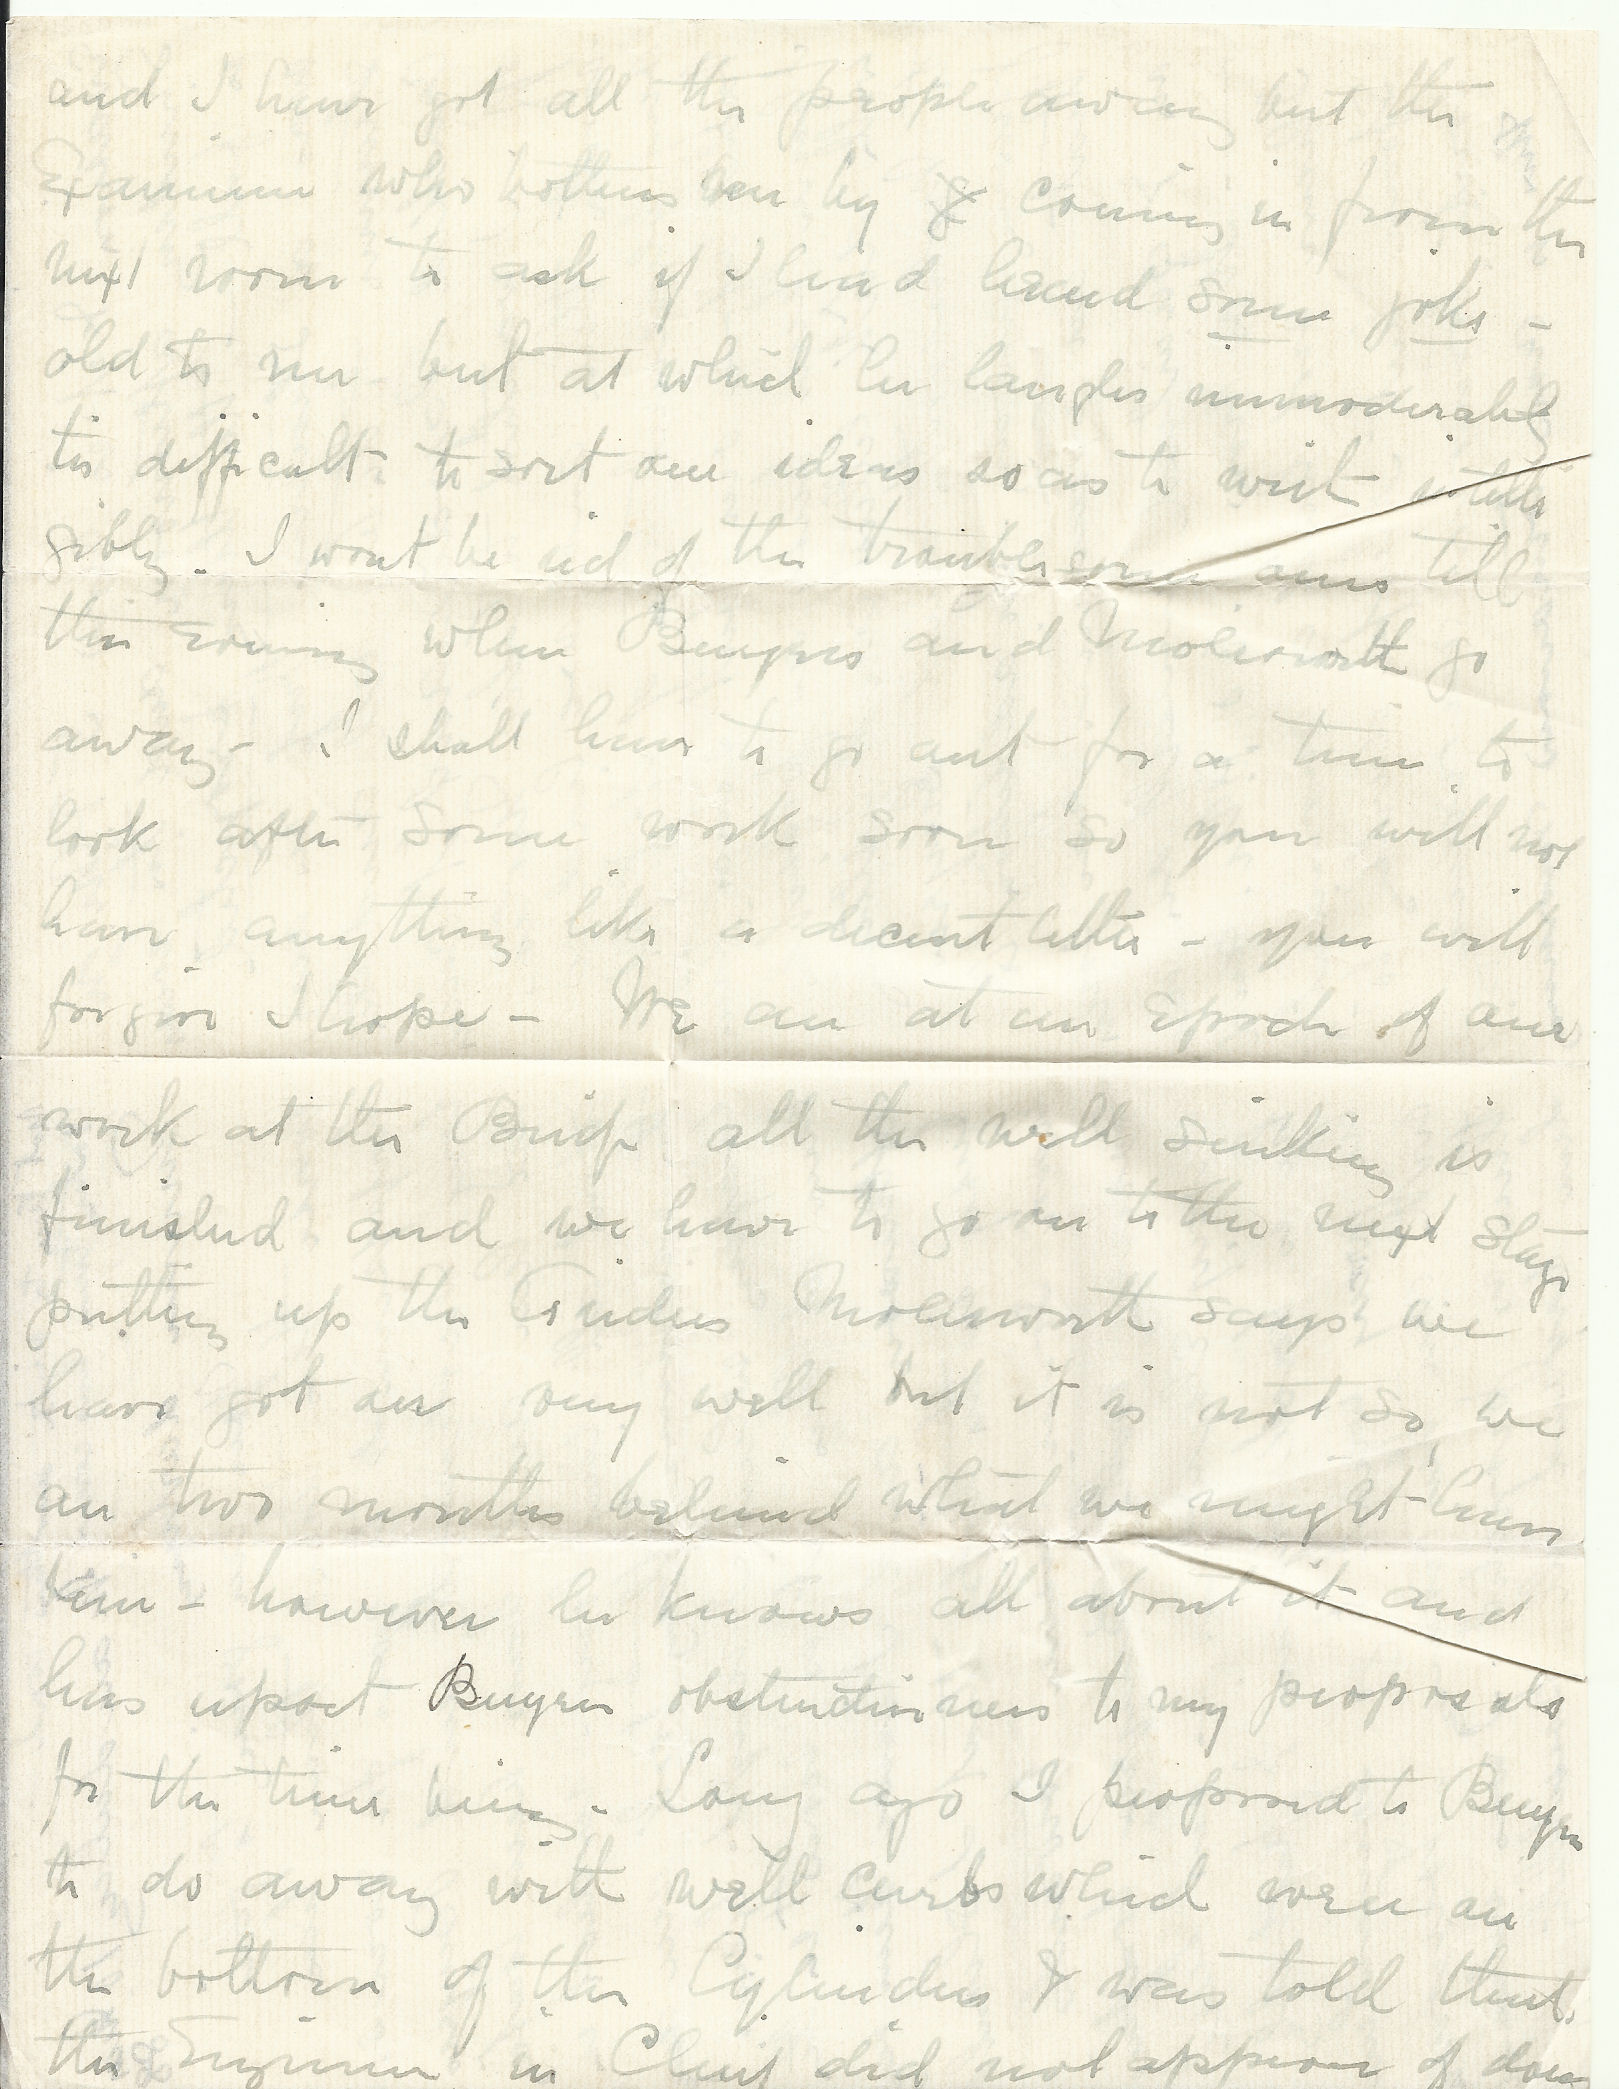 and I have got all the people away but the
Examiner who bothers me by & coming in from the
next room to ask if I had heard some joke -
old to me but at which he laughs immoderately
tis difficult to sort one ideas so as to write intelli
gibly. I wont be rid of the troublesome ones till
this evening when Buyers and Molesworth go
away - I shall have to go out for a time to
look after some work soon so you will not
have anything like a decent letter - you will
forgive I hope - We are at an Epoch of our
work at the Bridge all the well sinking is
finished and we have to go on to the next stage
putting up the Girders Molesworth says we
have got on very well but it is not so, we
are two months behind what we might have
been - however he knows all about it and
has upset Buyers obstructiveness to my proposals
for the time being - Long ago I proposed to Buyers
to do away with well curbs which were on
the bottom of the Cylinders & was told that
the Engineer in Chief did not approve of doing